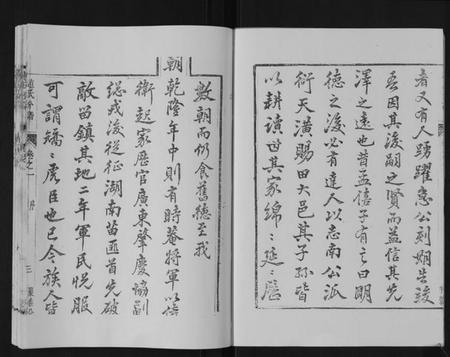 者又有人踴躍急公剞劂告竣
吾因其後嗣之賢而益信其先
澤之遠也昔孟僖子有言曰明
德之後必有達人以志南公派
衍天潢賜田大邑其子孫皆
以耕讀世其家綿〻延〻歷
數朝而仍食舊德至我
朝乾隆年中則有時菴將軍以侍
衛起家歷官廣東肇慶協副
總戎後從征湖南苗匪首先破
敵留鎮其地二年軍民悅服
可謂矯〻虎臣也已今族人皆
卷之一
三